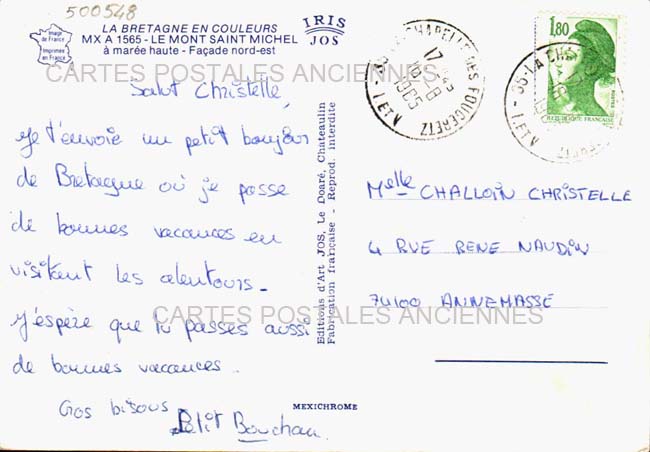 500548
LA BRETAGNE EN COULEURS
MX A 1565 - LE MONT SAINT MICHEL
à marée haute - Façade nord-est
Image de France
Imprimée en France
IRIS
JOS
CARTES POSTALES ANCIENNES
Salut Christelle,
Je t'envoie un petit bonjour
de Bretagne où je passe
de bonnes vacances en
visitant les alentours.
J'espère que tu passes aussi
de bonnes vacances.
Gros bisous
Petit Bouchau
Editions d'Art JOS, Le Doaré, Chateaulin
Fabrication française - Reprod. interdite
MEXICHROME
LA CHAPELLE DES FOUGERETZ
17
-8
1985
1,80
REPUBLIQUE FRANÇAISE
35-LA CHA
Melle CHALLOIN CHRISTELLE
4 RUE RENE NAUDIN
74100 ANNEMASSE
CARTES POSTALES ANCIENNES